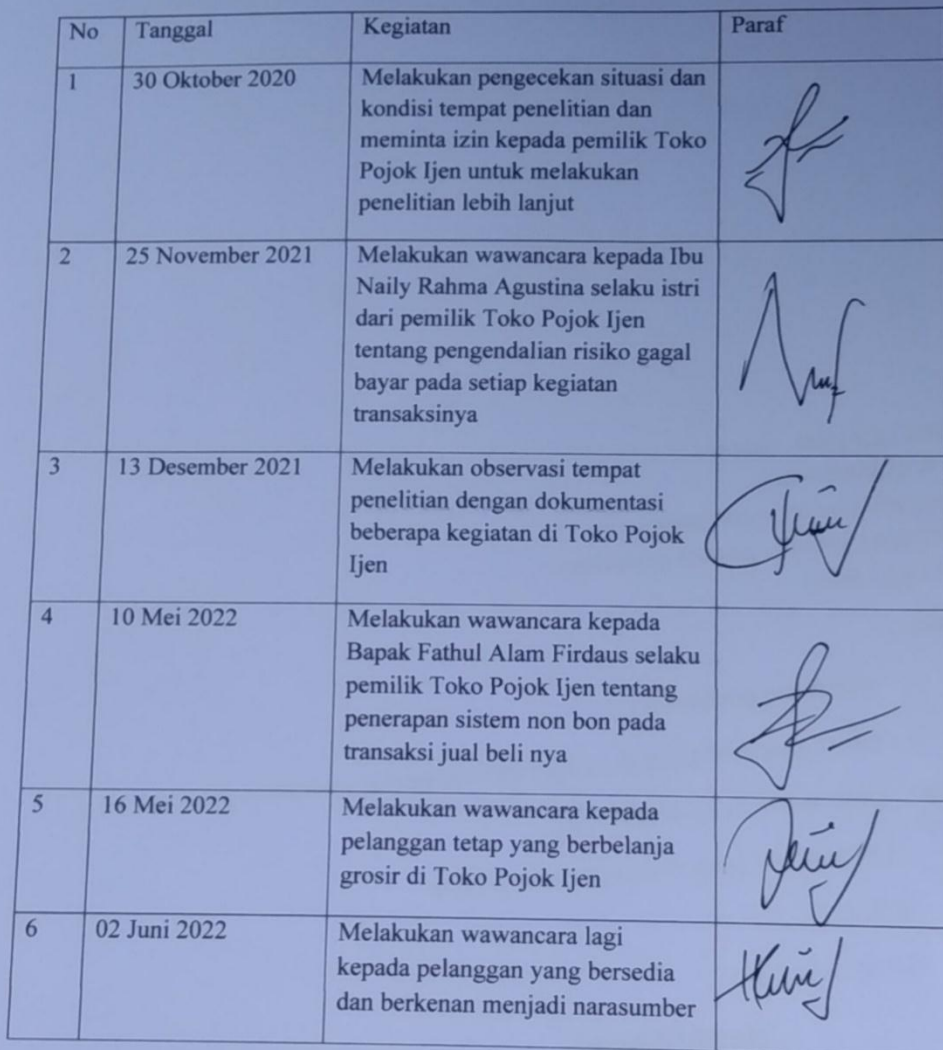 No Tanggal Kegiatan Paraf
1 30 Oktober 2020 Melakukan pengecekan situasi dan
kondisi tempat penelitian dan
meminta izin kepada pemilik Toko
Pojok Ijen untuk melakukan
penelitian lebih lanjut
2 25 November 2021 Melakukan wawancara kepada Ibu
Naily Rahma Agustina selaku istri
dari pemilik Toko Pojok Ijen
tentang pengendalian risiko gagal
bayar pada setiap kegiatan
transaksinya
3 13 Desember 2021 Melakukan observasi tempat
penelitian dengan dokumentasi
beberapa kegiatan di Toko Pojok
Ijen
4 10 Mei 2022 Melakukan wawancara kepada
Bapak Fathul Alam Firdaus selaku
pemilik Toko Pojok Ijen tentang
penerapan sistem non bon pada
transaksi jual beli nya
5 16 Mei 2022 Melakukan wawancara kepada
pelanggan tetap yang berbelanja
grosir di Toko Pojok Ijen
6 02 Juni 2022 Melakukan wawancara lagi
kepada pelanggan yang bersedia
dan berkenan menjadi narasumber